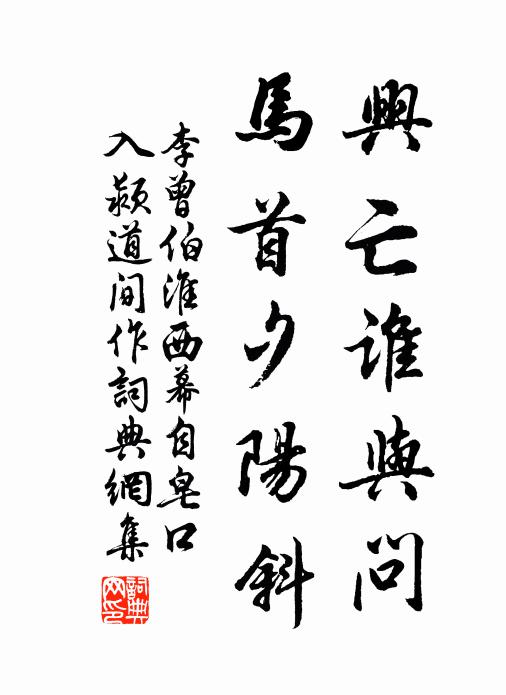 興亡誰與問
馬首夕陽斜
李曾伯淮西幕自皂口
入潁道間作詞典網集
詞典網印